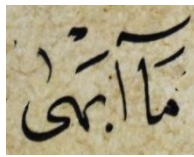 مَا آبَهىٰ